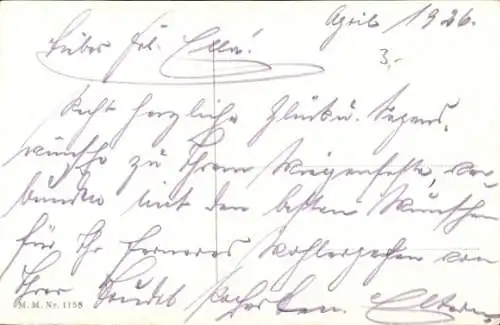 April 1926.
3,-
Liebes Frl. Ella!
Recht herzliche Glück u. Segens-
wünsche zu Ihrem Wiegenfeste, ver-
bunden mit den besten Wünschen
für Ihr ferneres Wohlergehen von
Ihrer Eltern.
M. M. Nr. 1158